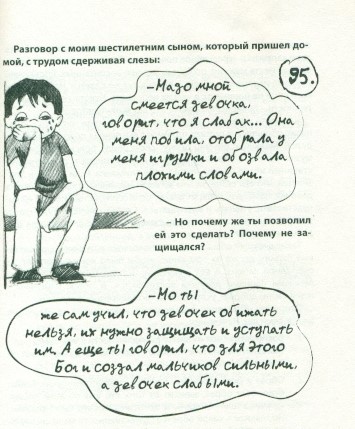 Разговор с моим шестилетним сыном, который пришел до-
мой, с трудом сдерживая слезы:
95.
–Мадо мной
смеется девочка,
говорит, что я слабак... Она
меня побила, отобрала у
меня игрушки и обозвала
плохими словами.
– Но почему же ты позволил
ей это сделать? Почему не за-
щищался?
–Мо ты
же сам учил, что девочек обижать
нельзя, их нужно защищать и уступать
им. А еще ты говорил, что для этого
Бог и создал мальчиков сильными,
а девочек слабыми.